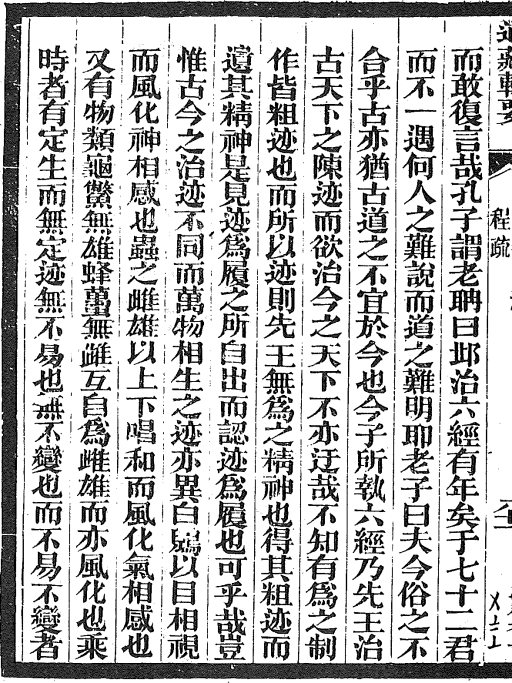 道藏輯要
程疏
而敢復言哉孔子謂老聃曰邱治六經有年矣于七十二君
而不一遇何人之難說而道之難明耶老子曰夫今俗之不
合乎古亦猶古道之不宜於今也今子所執六經乃先王治
古天下之陳迹而欲治今之天下不亦迂哉不知有爲之制
作皆粗迹也而所以迹則先王無爲之精神也得其粗迹而
遺其精神是見迹爲履之所自出而認迹爲履也可乎哉豈
惟古今之治迹不同而萬物相生之迹亦異白鶂以目相視
而風化神相感也蟲之雌雄以上下唱和而風化氣相感也
又有物類龜鱉無雄蜂蠆無雌互自爲雌雄而亦風化也乘
時者有定生而無定迹無不易也無不變也而不易不變者